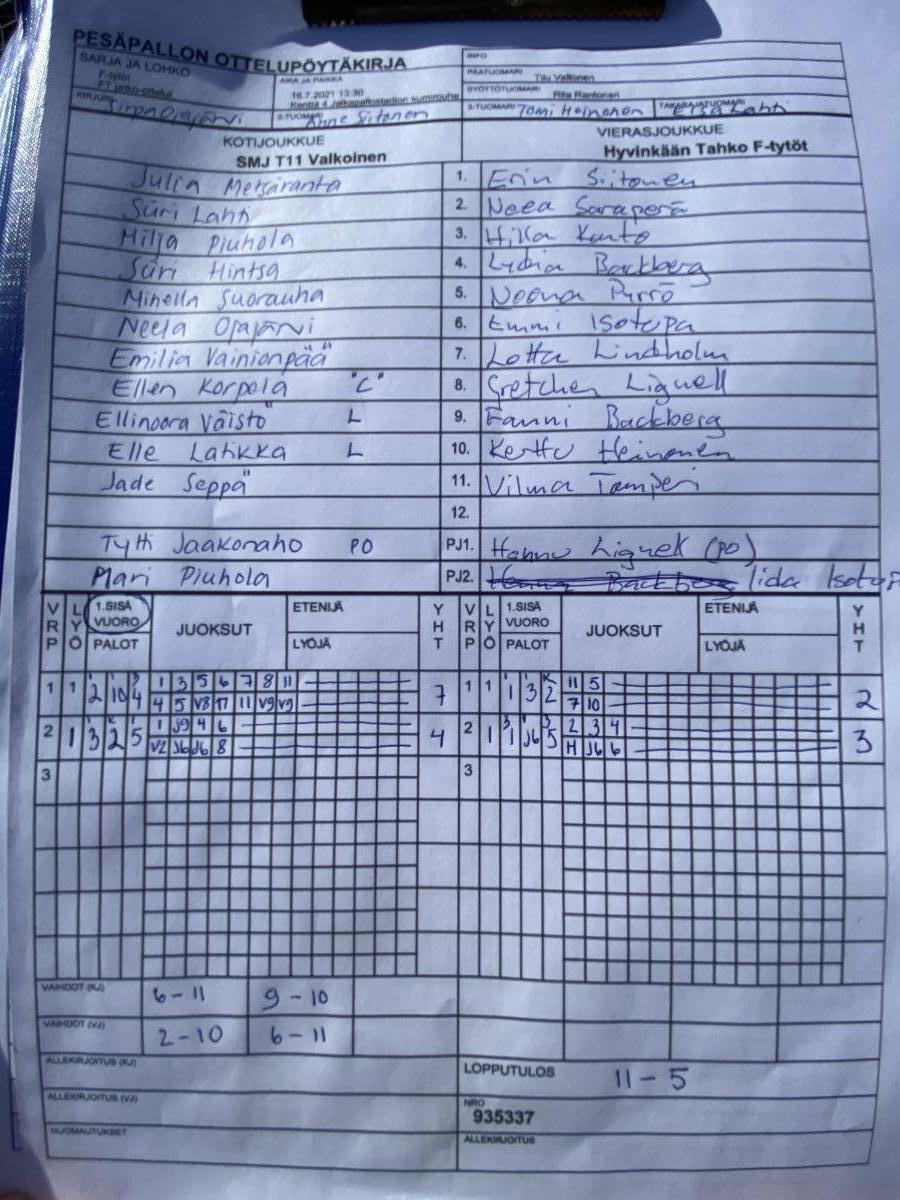 PESÄPALLON OTTELUPÖYTÄKIRJA
SARJA JA LOHKO
F-tytöt
FT jatko-ottelut
AIKA JA PAIKKA
16.7.2021 13:30
Kenttä 4 Jalkapallostadion kumirouhe
INFO
PÄÄTUOMARI Tiiu Valtonen
SYÖTTÖTUOMARI Riia Rantonen
KIRJURI Ojajärvi
2-TUOMARI Anne Siitonen
3-TUOMARI Tomi Heinonen
TAKARAJATUOMARI Lahti
KOTIJOUKKUE
SMJ T11 Valkoinen
VIERASJOUKKUE
Hyvinkään Tahko F-tytöt
Julia Metsäranta 1. Erin Siitonen
Siiri Lahti 2. Neea Saraperä
Milja Piuhola 3. Kunto
Siiri Hintsa 4. Lydia Backberg
Minella Suorauha 5. Noona Pyrrö
Neela Ojajärvi 6. Emmi Isotupa
Emilia Vainionpää 7. Lotta Lindholm
Ellen Korpela "C" 8. Gretchen Lignell
Ellinoora Väistö L 9. Fanni Backberg
Elle Latikka L 10. Kerttu Heinonen
Jade Seppä 11. Vilma Tamperi
12.
Tytti Jaakonaho PO PJ1. Hannu Lignell (PO)
Mari Piuhola PJ2. Iida
VRP LYÖ 1.SISÄ VUORO PALOT JUOKSUT ETENIJÄ LYÖJÄ YHT VRP LYÖ 1.SISÄ VUORO PALOT JUOKSUT ETENIJÄ LYÖJÄ YHT
1 1 2 10 4 1 3 5 6 7 8 11 7 1 1 1 3 2 11 5 2
4 5 V8 11 V9 V9 7 10
2 1 3 2 5 1 J9 4 6 4 2 1 1 J6 5 2 3 4 3
V2 J6 J6 8 H J6 6
3 3
VAIHDOT (KJ) 6-11 9-10
VAIHDOT (VJ) 2-10 6-11
ALLEKIRJOITUS (KJ)
LOPPUTULOS 11-5
ALLEKIRJOITUS (VJ)
NRO
935337
HUOMAUTUKSET
ALLEKIRJOITUS